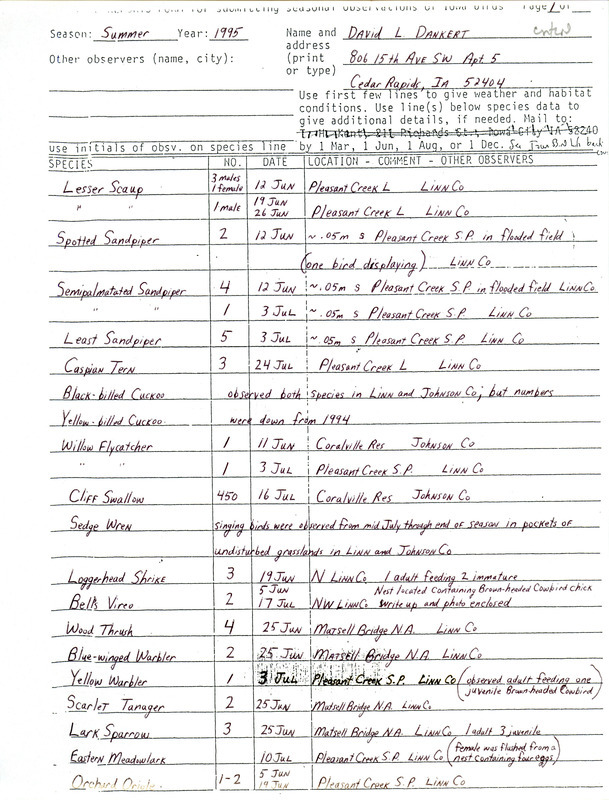 REPORTS FORM for submitting seasonal observations of IOWA birds Page 1 of
Season: Summer Year: 1995 Name and DAVID L DANKERT
Other observers (name, city): address 806 15th AVE SW APT 5
(print
or type) CEDAR RAPIDS, IA 52404
Use first few lines to give weather and habitat
conditions. Use line(s) below species data to
give additional details, if needed. Mail to:
Richards St., Iowa City IA 52240
use initials of obsv. on species line by 1 Mar, 1 Jun, 1 Aug, or 1 Dec.
SPECIES NO. DATE LOCATION - COMMENT - OTHER OBSERVERS
Lesser Scaup 3 males 1 female 12 Jun Pleasant Creek L Linn Co
" " 1 male 19 Jun 26 Jun Pleasant Creek L Linn Co
Spotted Sandpiper 2 12 Jun ~.05m S Pleasant Creek S.P. in flooded field
(one bird displaying) Linn Co
Semipalmatated Sandpiper 4 12 Jun ~.05m S Pleasant Creek S.P. in flooded field Linn Co.
" " 1 3 Jul ~.05m S Pleasant Creek S.P. Linn Co
Least Sandpiper 5 3 Jul ~.05m S Pleasant Creek S.P. Linn Co
Caspian Tern 3 24 Jul Pleasant Creek L Linn Co
Black-billed Cuckoo observed both species in Linn and Johnson Co; but numbers
Yellow-billed Cuckoo were down from 1994
Willow Flycatcher 1 11 Jun Coralville Res Johnson Co
" " 1 3 Jul Pleasant Creek S.P. Linn Co
Cliff Swallow 450 16 Jul Coralville Res Johnson Co
Sedge Wren singing birds were observed from mid July through end of season in pockets of
undisturbed grasslands in Linn and Johnson Co
Loggerhead Shrike 3 19 Jun N Linn Co 1 adult feeding 2 immature
Bell's Vireo 2 5 Jun 17 Jul NW Linn Co Nest located containing Brown-headed Cowbird chick write up and photo enclosed
Wood Thrush 4 25 Jun Matsell Bridge N.A. Linn Co
Blue-winged Warbler 2 25 Jun Matsell Bridge N.A. Linn Co
Yellow Warbler 1 3 Jul Pleasant Creek S.P. Linn Co (observed adult feeding one juvenile Brown-headed Cowbird)
Scarlet Tanager 2 25 Jun Matsell Bridge N.A. Linn Co
Lark Sparrow 3 25 Jun Matsell Bridge N.A. Linn Co 1 adult 3 juvenile
Eastern Meadowlark 10 Jul Pleasant Creek S.P. Linn Co (female was flushed from a nest containing four eggs)
Orchard Oriole 1-2 5 Jun 19 Jun Pleasant Creek S.P. Linn Co